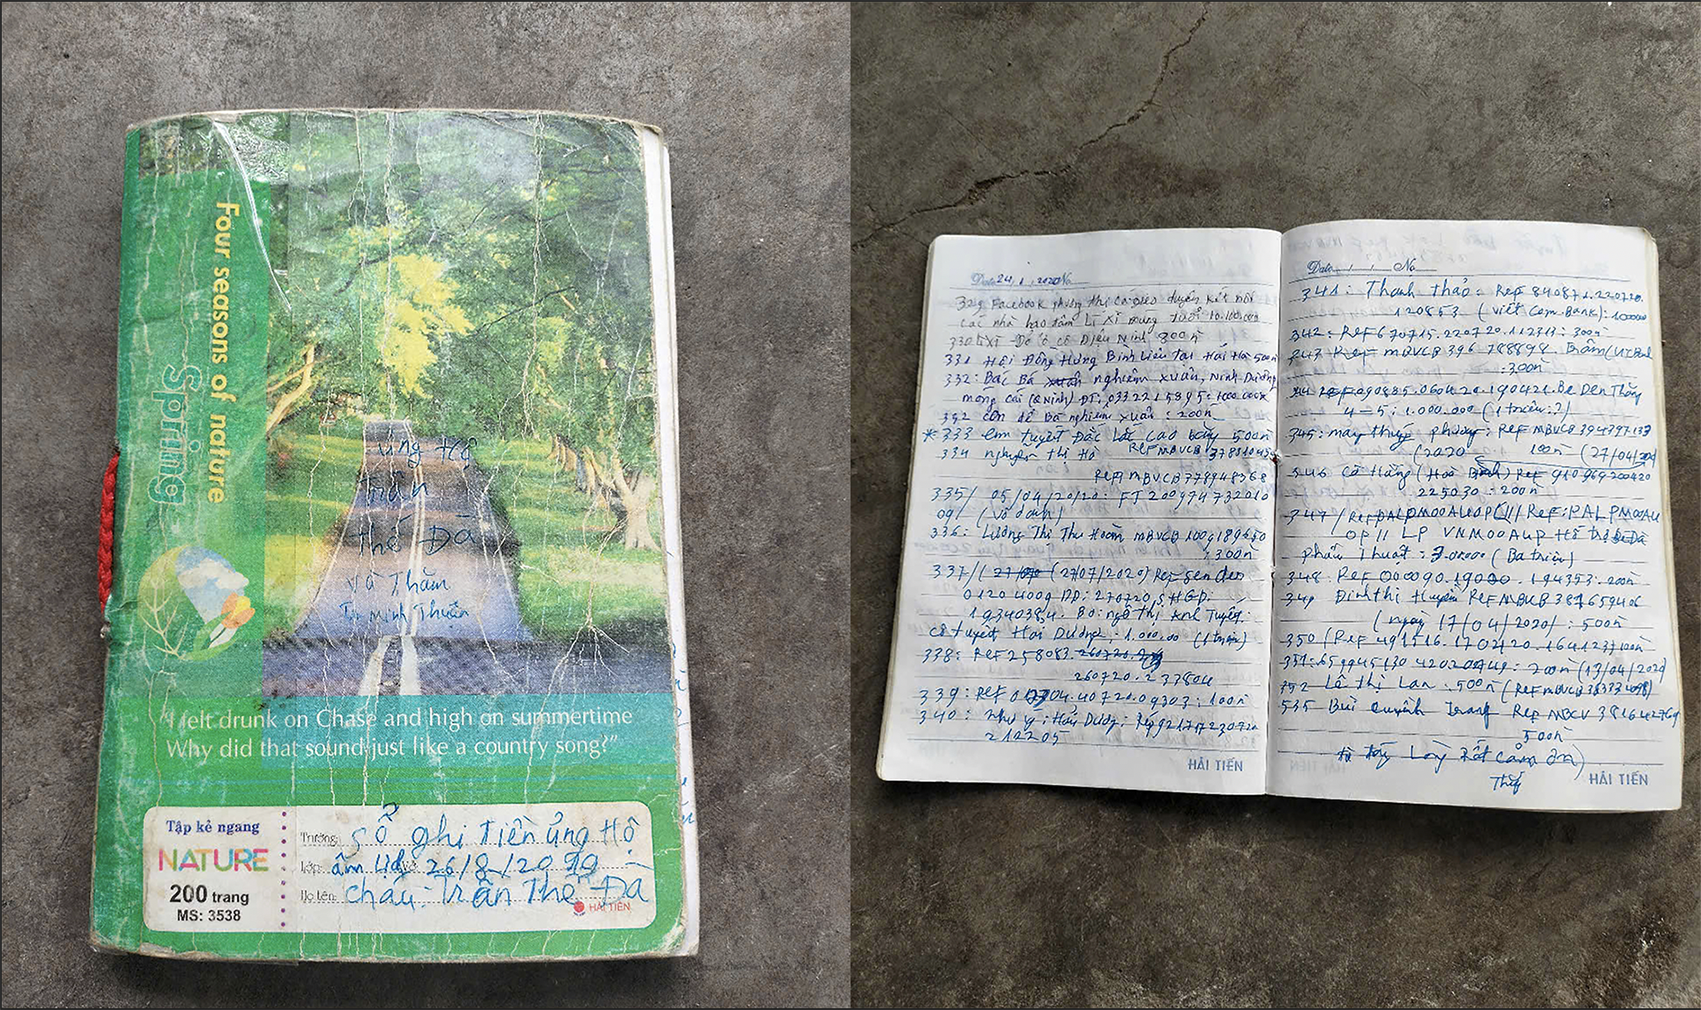 Four seasons of nature
Spring
ủng hộ
trần
thế Đà
và Thăm
Tr Minh Thuận
"I felt drunk on Chase and high on summertime
Why did that sound just like a country song?"
Tập kẻ ngang
NATURE
200 trang
MS: 3538
Trường: Sổ ghi Tiền ủng Hộ
Lớp: âm lịch 26/8/2019
Họ tên: cháu: Trần Thế Đà
HẢI TIẾN
Date 24, 1, 2020 No
329 Facebook
các nhà hảo tâm Lì Xì mừng tuổi 10.100.000
330 Lì Xì Đỏ ô cô Diệu Ninh 300n
331 Hội Đồng Hưng Bình Liêu Tại Hải Hà 500n
332: Bác Bá nghiêm xuân, Ninh Dương
móng cái (QNinh) ĐT: 0332215895: 1000.000
332 con dế Bá nghiêm xuân: 200n
* 333 em Tuyết Đắc Lắc cao bằng 500n
334 nguyễn Thị Hà Ref MBVCB
Ref MBVCB 778948568
335/ 05/04/2020: FT 200974732010
09/ (vô danh)
336: Lương Thị Thu Hoàm MBVCB
: 300n
337/ (27/07/2020) Ref sen den
Bo: ngô Thị Anh Tuyết.
cô tuyết Hải Dương: 1.000.000 (1 triệu)
338: Ref 258083.
260720. 237804
339: Ref 40720.09303: 100n
340: như ý: Hải Dương: Ref
212205
HẢI TIẾN
Date / / No
341: Thanh thảo: Ref 840871.220720.
120853 (viết Com-Bank): 100000
342: REF 670715.220720.112313: 300n
343 Ref MBVCB 396 788898. Trâm
: 300n
Ref 090585.060420.190421. Be Den Thăng
4-5: 1.000.000 (1 triệu:?)
345: may thuý phương: Ref MBVCB 394797133
(2020 100n (27/04/20)
346 cô Hằng (Hoà Bình) Ref 910969200420
225030: 200n
347/ Ref: PALPM00AU
OP11 LP VNM00AUP Hỗ trợ
phẫu Thuật: (Ba triệu)
348: Ref 000090.190 . 194353: 200n
349 Đinh thị Huyền Ref MBVCB 381659406
(ngày 17/04/2020): 500n
350 (Ref 491516.170420.164123 100n
351: 200n (13/04/2020)
352 Lê Thị Lan: 500n (Ref MBVCB
535 Bùi quỳnh Trang Ref MBCV 381642769
500n
Lòng Rất cảm ơn)
HẢI TIẾN